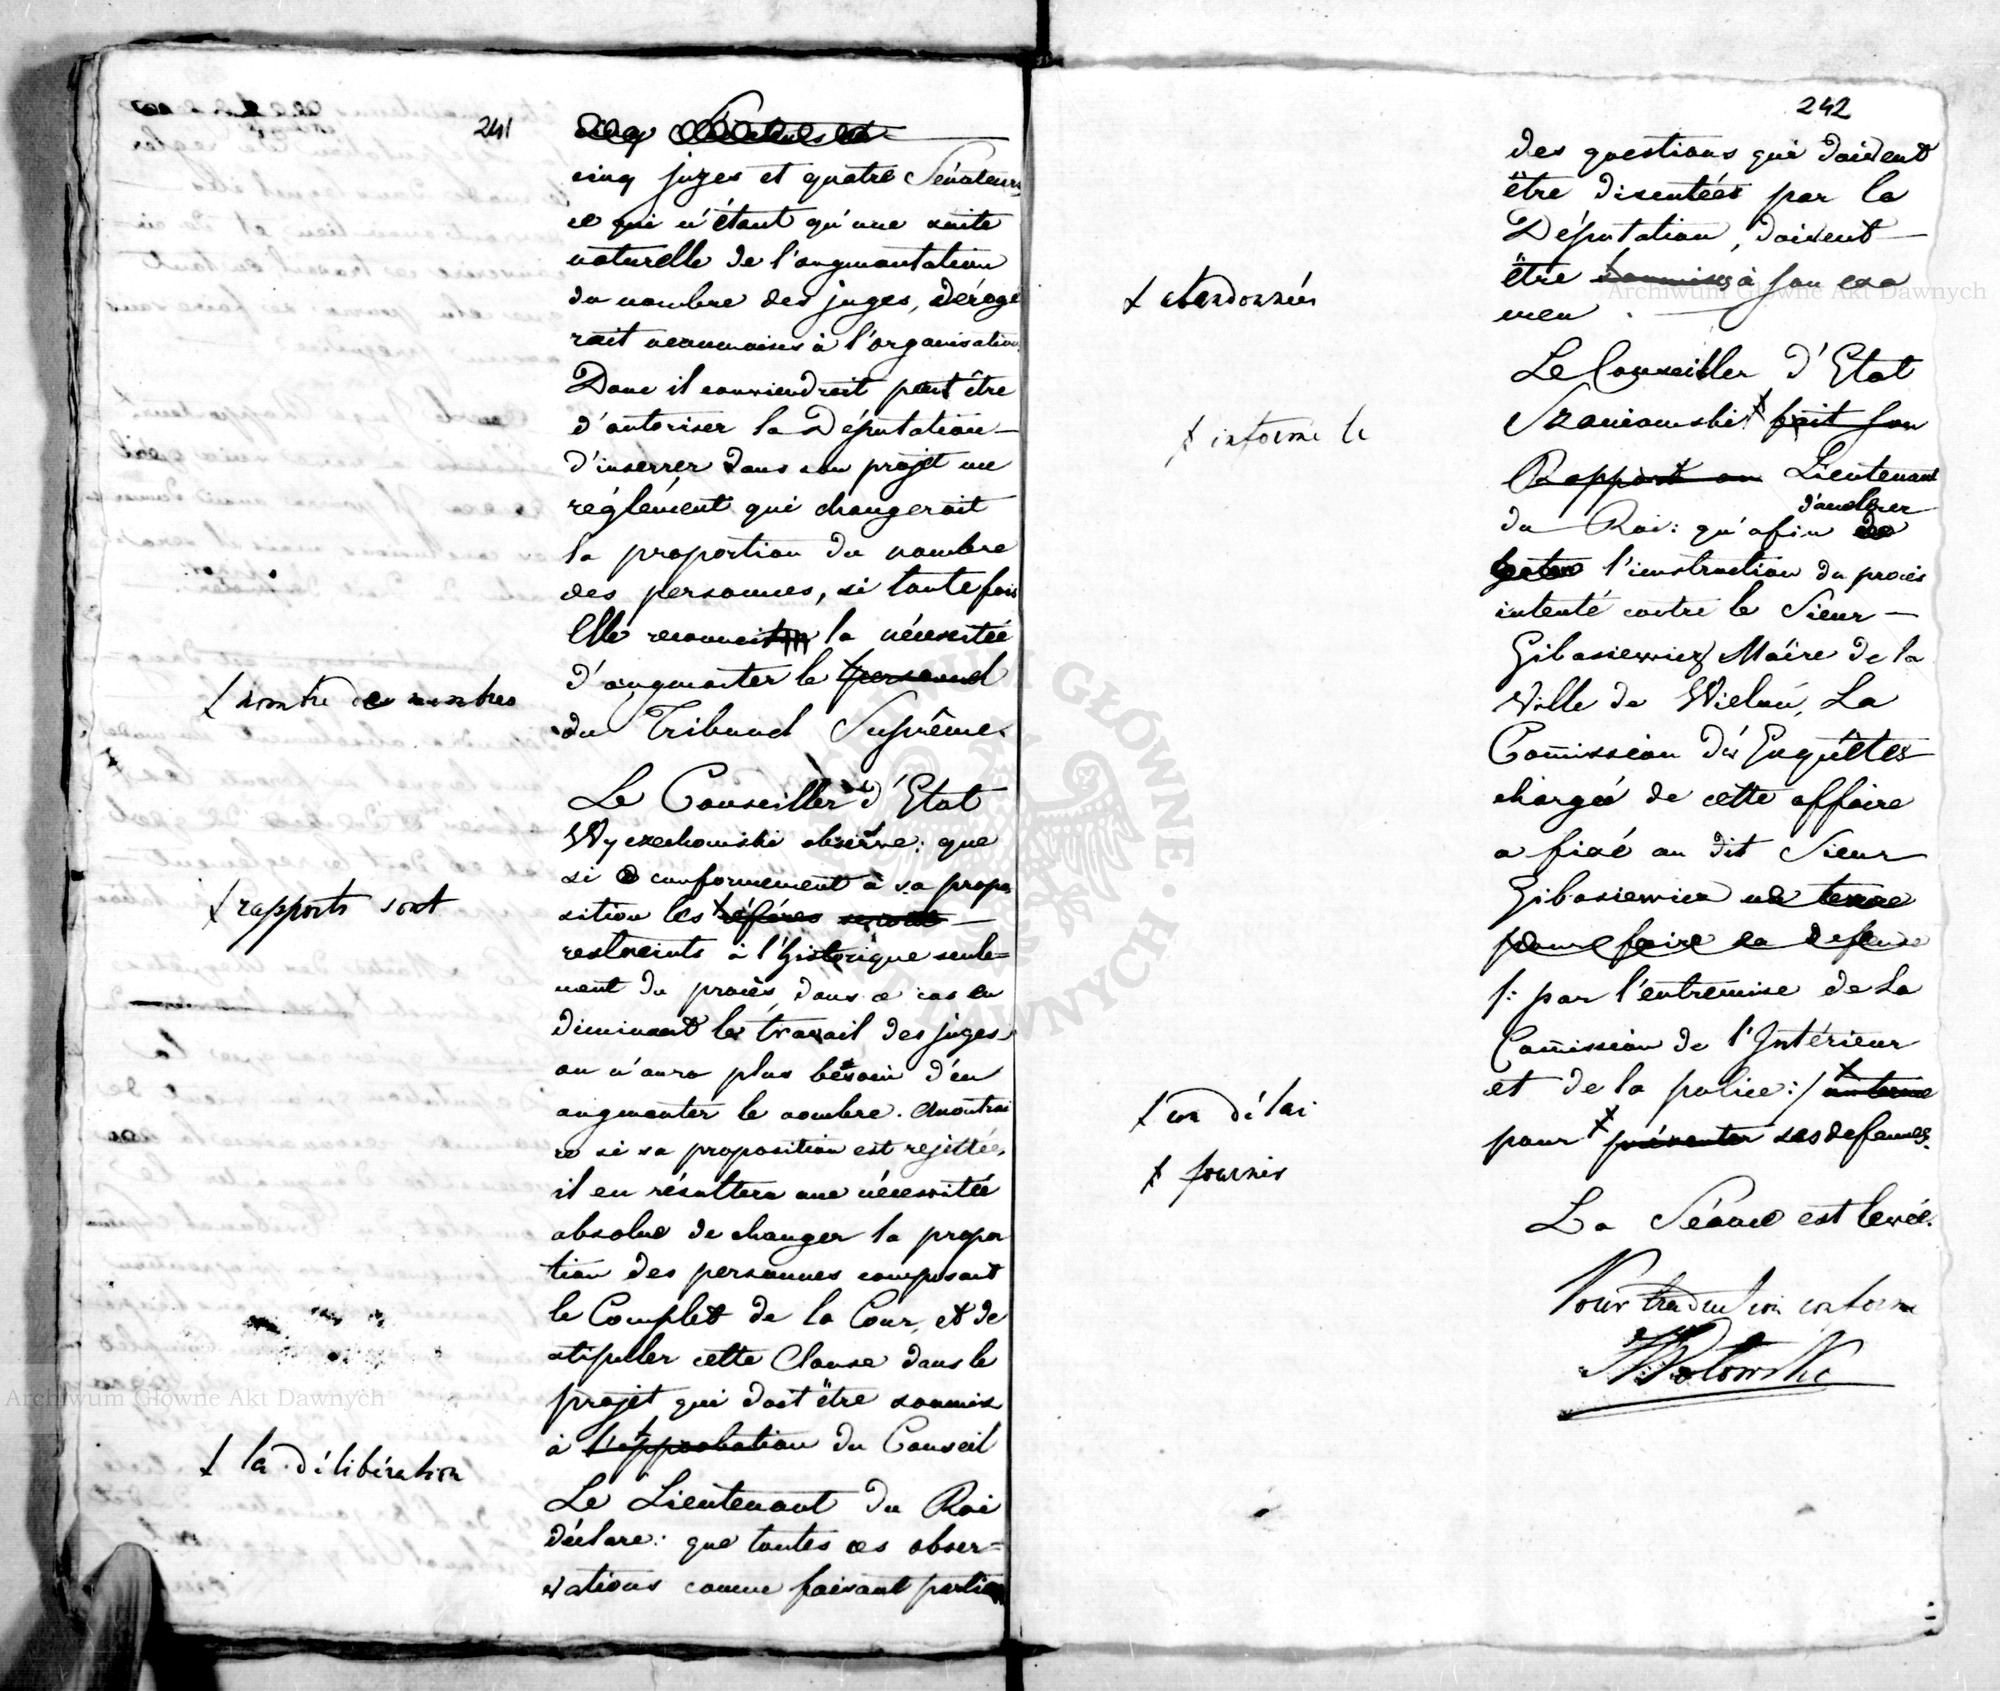 241
cinq juges et quatre Sénateurs
ce qui n'étant qu'une suite
naturelle de l'augmantation
du nombre des juges, déroge
rait neanmoins à l'organisation.
Donc il conviendroit peut être
d'autoriser la Députation
d'inserrer dans son projet une
réglément qui changeroit
la proportion du nombre
des personnes, si toute fois
Elle reconnoit la nécessitée
d'augmenter le personnel
ł nombre de membres
du Tribunal Suprême.
Le Conseiller d'Etat
Wyczechowski observe: que
si conformement à sa propo
sition les référés seront
ł rapports sont
restreints à l'historique seule=
ment du procès, dans ce cas en
diminuant le travail des juges
on n'aura plus besoin d'en
augmenter le nombre. Aucontrai
re si sa proposition est rejettée,
il en résultera une nécessitée
absolue de changer la propor
tion des personnes composant
le Complet de la Cour, et de
stipuller cette Clause dans le
projet qui doit être soumis
à l'approbation du Conseil
ł la délibération
Le Lieutenant du Roi
déclare: que toutes ces obser=
vations comme faisant partie
242
des questions qui doivent
être discutées par la
Députation, doivent
être soumises à son exa
ł abandonnées
men.
Le Conseiller d'Etat
Szaniawski fait son
ł informe le
Rapport au Lieutenant
du Roi: qu'afin de
d'accélerer
l'instruction du procès
intenté contre le Sieur
Gibasiewicz Maire de la
Ville de Wielun, La
Commission des Enquêtes
chargée de cette affaire
a fixé au dit Sieur
Gibasiewicz un terme
pour faire sa defense
/: par l'entremise de La
Commission de l'Intérieur
et de la police :/ un terme
ł un délai
pour présenter ses defenses.
ł fournir
La Séance est levée.
Pour traduction conforme